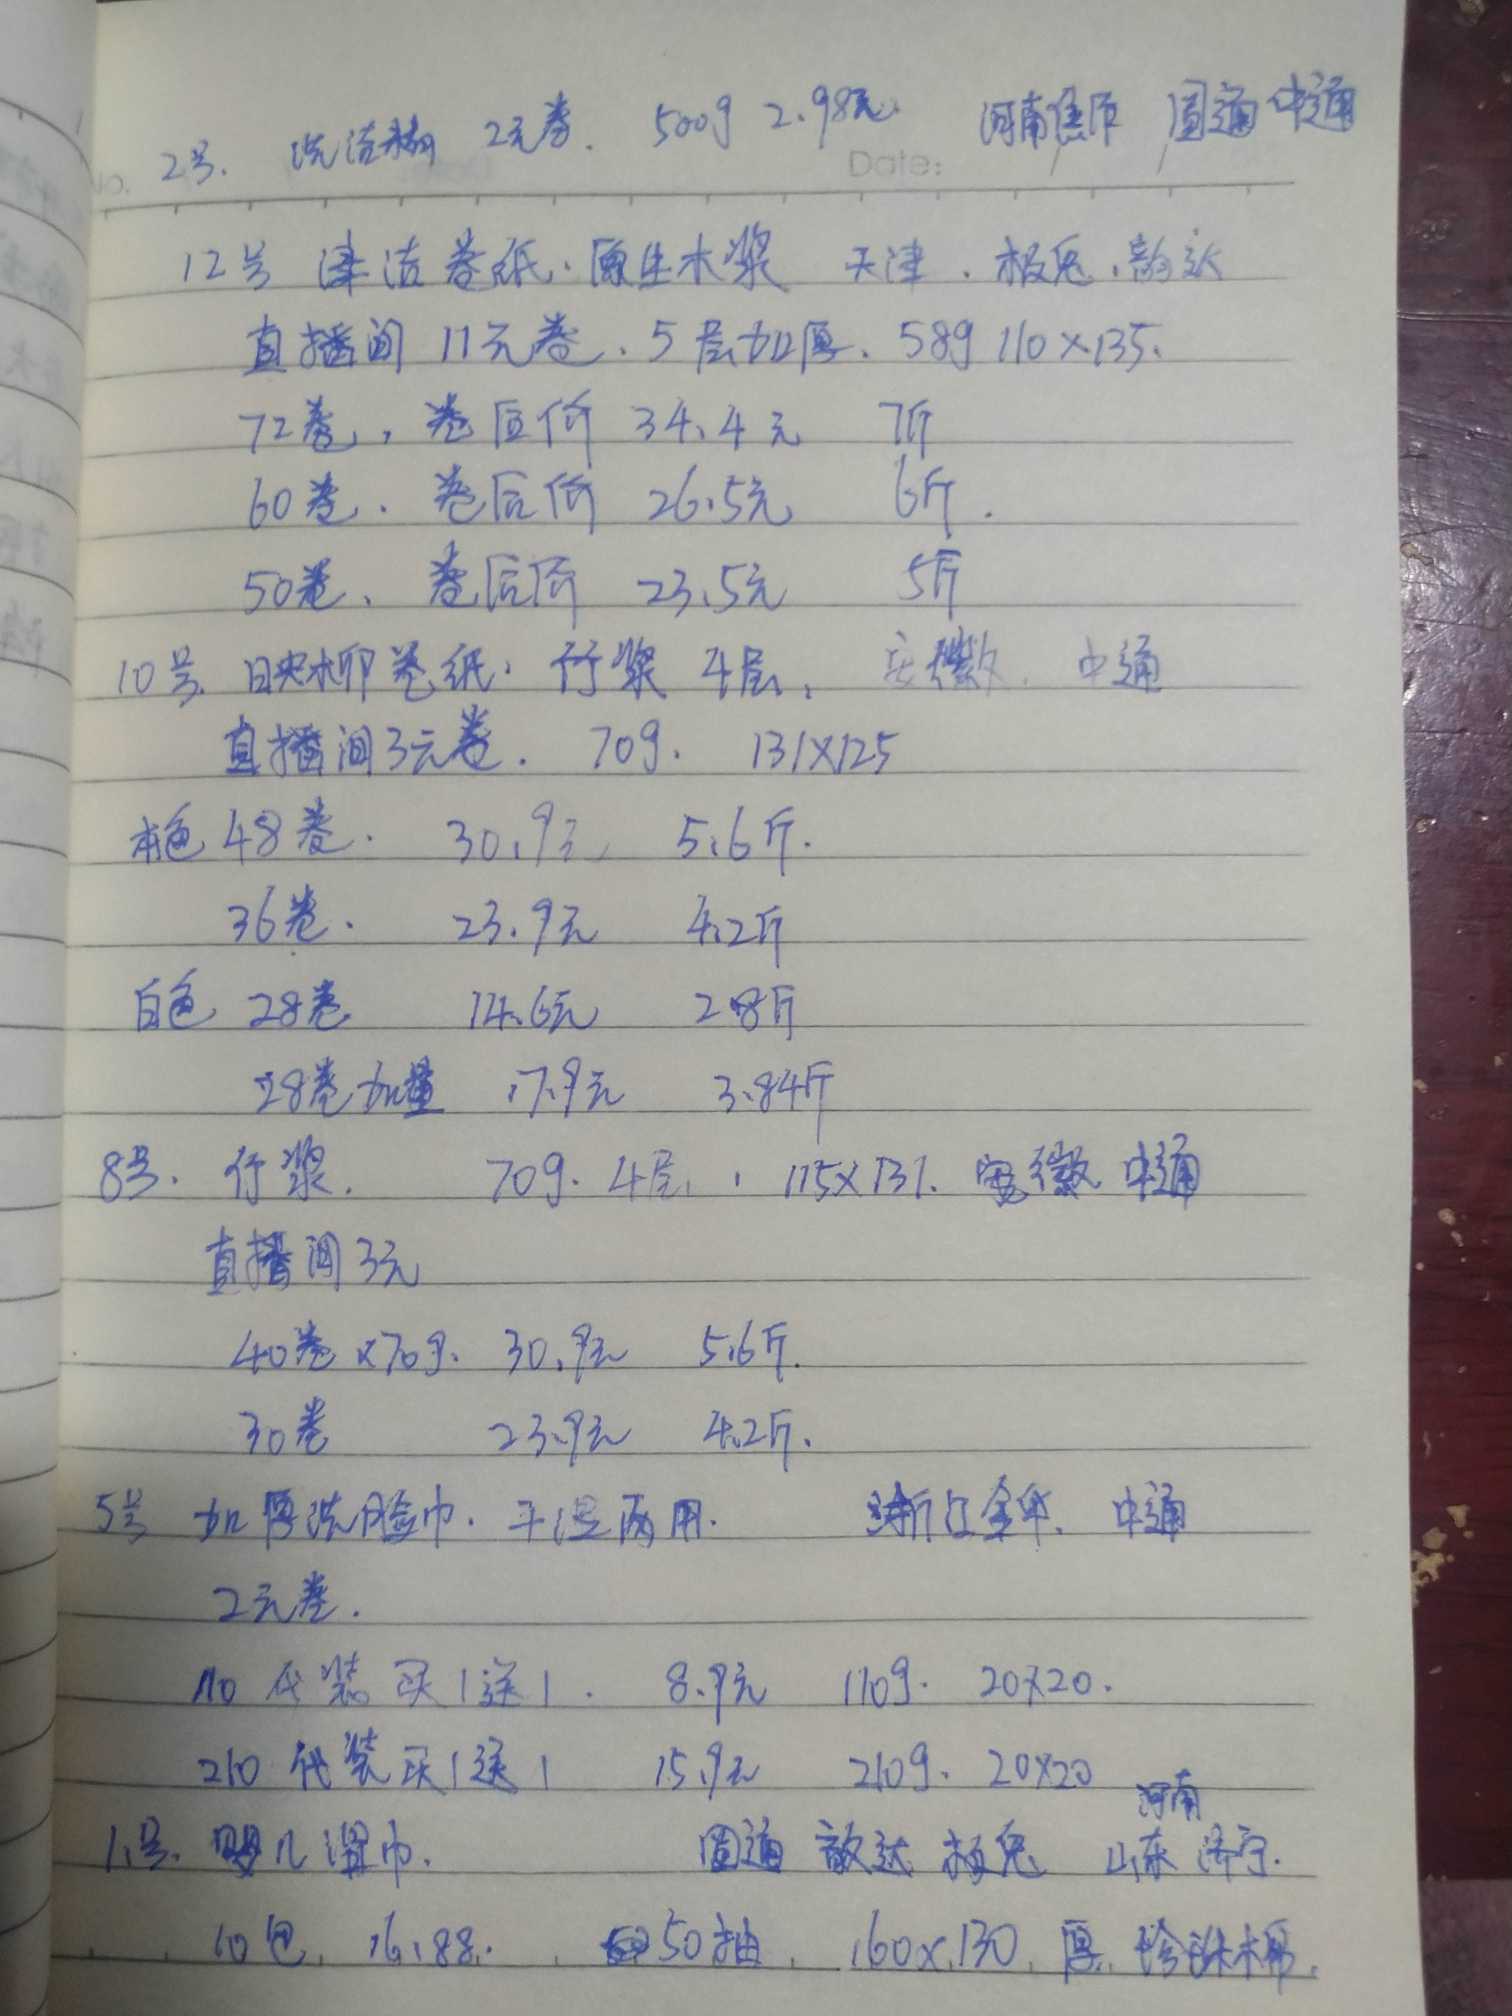 2号. 洗洁精 2元卷. 500g 2.98元. 河南焦作 圆通 中通
No. Date:
12号 津洁卷纸. 原生木浆 天津. 极兔. 韵达
直播间 11元卷. 5层加厚. 58g 110×135.
72卷, 卷后价 34.4元 7斤
60卷. 卷后价 26.5元 6斤.
50卷. 卷后价 23.5元 5斤
10号. 映柳卷纸. 竹浆 4层. 安徽. 中通
直播间3元卷. 70g. 131×125
本色 48卷. 30.9元 5.6斤.
36卷. 23.9元 4.2斤
白色 28卷 14.6元 2.8斤
28卷加量 17.9元 3.84斤
8号. 竹浆. 70g. 4层. 115×131. 安徽 中通
直播间3元
40卷×70g. 30.9元 5.6斤.
30卷 23.9元 4.2斤.
5号 加厚洗脸巾. 干湿两用. 浙江金华. 中通
2元卷.
110 代装 买1送1. 8.9元 110g. 20×20.
210 代装买1送1 15.9元 210g. 20×20
河南
1号. 婴儿湿巾. 圆通 韵达 极兔 山东 济宁.
10包. 16.88. 50抽. 160×130. 厚. 珍珠棉.